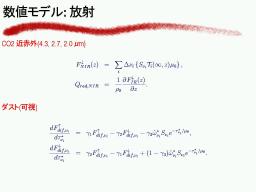 数値モデル: 放射
CO2 近赤外(4.3, 2.7, 2.0 μm)
F^↓_{NIR}(z) = Σ_i Δν_i {S_{ν_i} T_i(∞, z) μ_0},
Q_{rad,NIR} = \frac{1}{ρ_a} \frac{∂F^↓_{IR}(z)}{∂z}.
ダスト(可視)
\frac{dF^↑_{dif,ν_i}}{dτ^*_{ν_i}} = γ_1 F^↑_{dif,ν_i} − γ_2 F^↓_{dif,ν_i} − γ_3 \tilde{ω}^*_{ν_i} S_{ν_i} e^{−τ^*_{ν_i}/μ_0},
\frac{dF^↓_{dif,ν_i}}{dτ^*_{ν_i}} = γ_2 F^↑_{dif,ν_i} − γ_1 F^↓_{dif,ν_i} + (1 − γ_3) \tilde{ω}^*_{ν_i} S_{ν_i} e^{−τ^*_{ν_i}/μ_0},